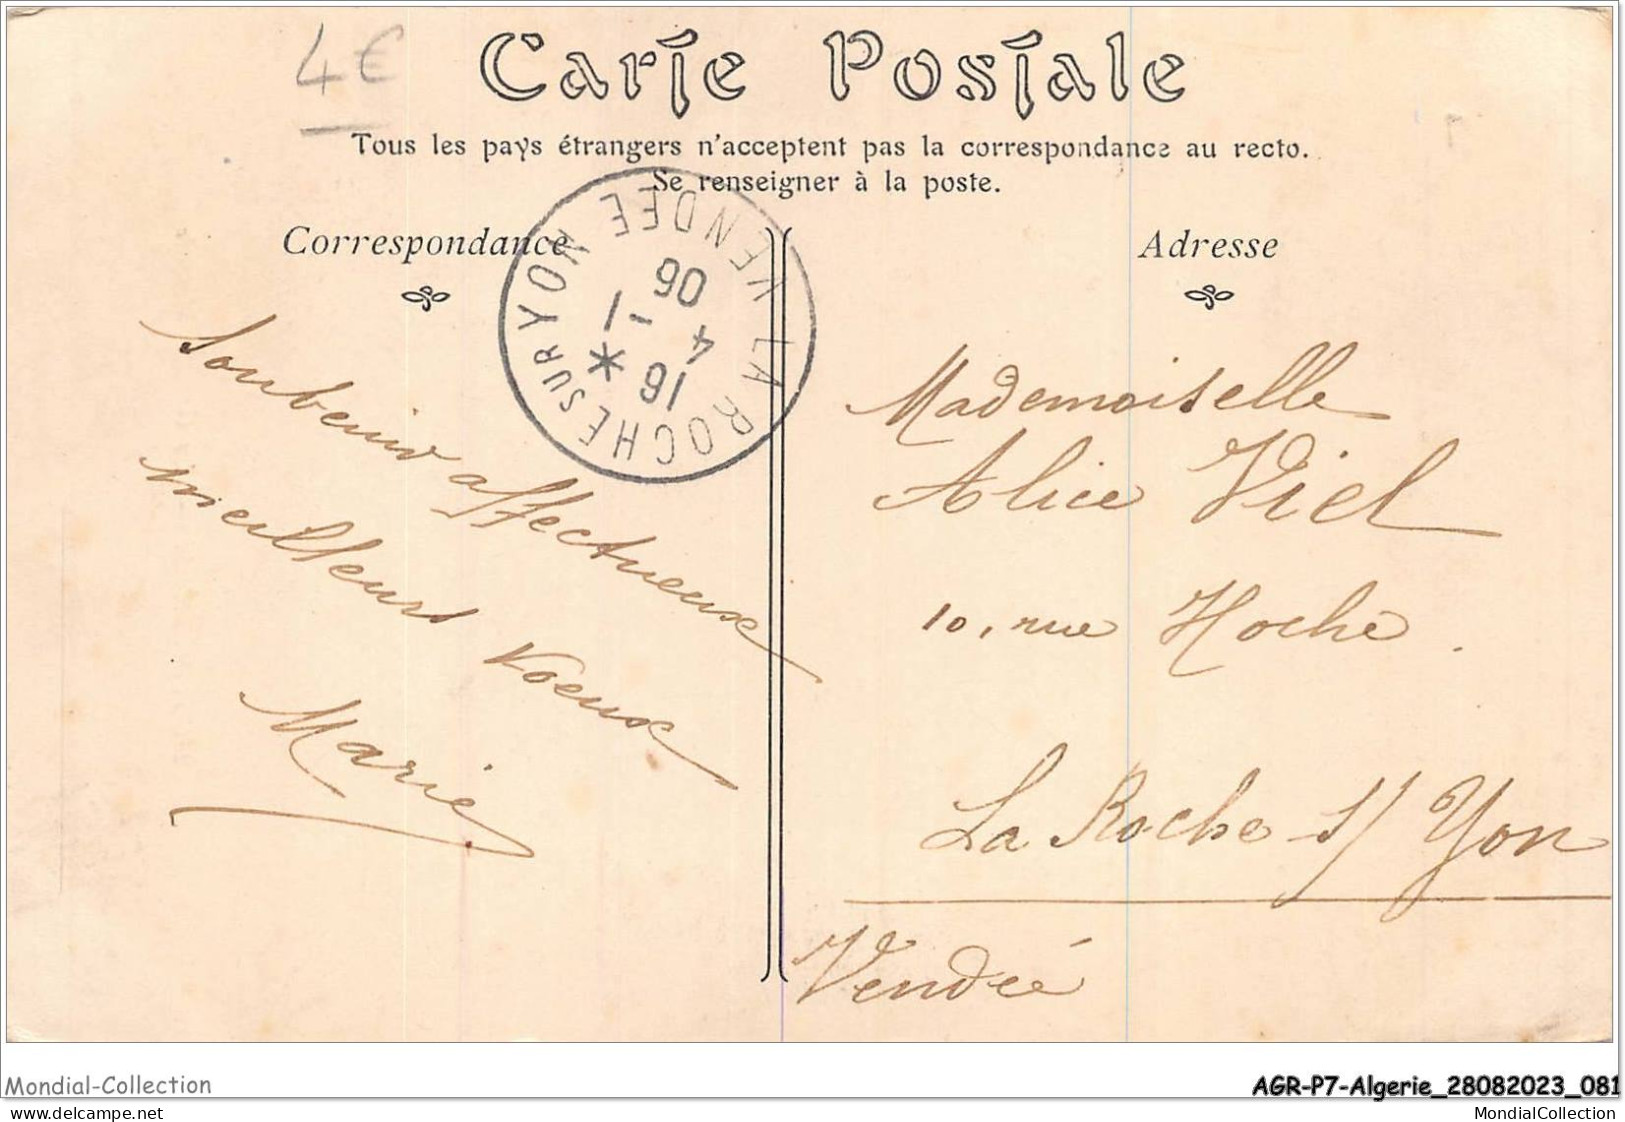 4€
Carte Postale
Tous les pays étrangers n'acceptent pas la correspondance au recto.
Se renseigner à la poste.
Correspondance
Adresse
LA ROCHE SUR YON VENDÉE
16 *
4 -1
06
Souvenir affectueux
meilleurs voeux
Marie
Mademoiselle
Alice Viel
10, rue Hoche.
La Roche s/ Yon
Vendée
Mondial-Collection
AGR-P7-Algerie_28082023_081
delcampe.net
MondialCollection